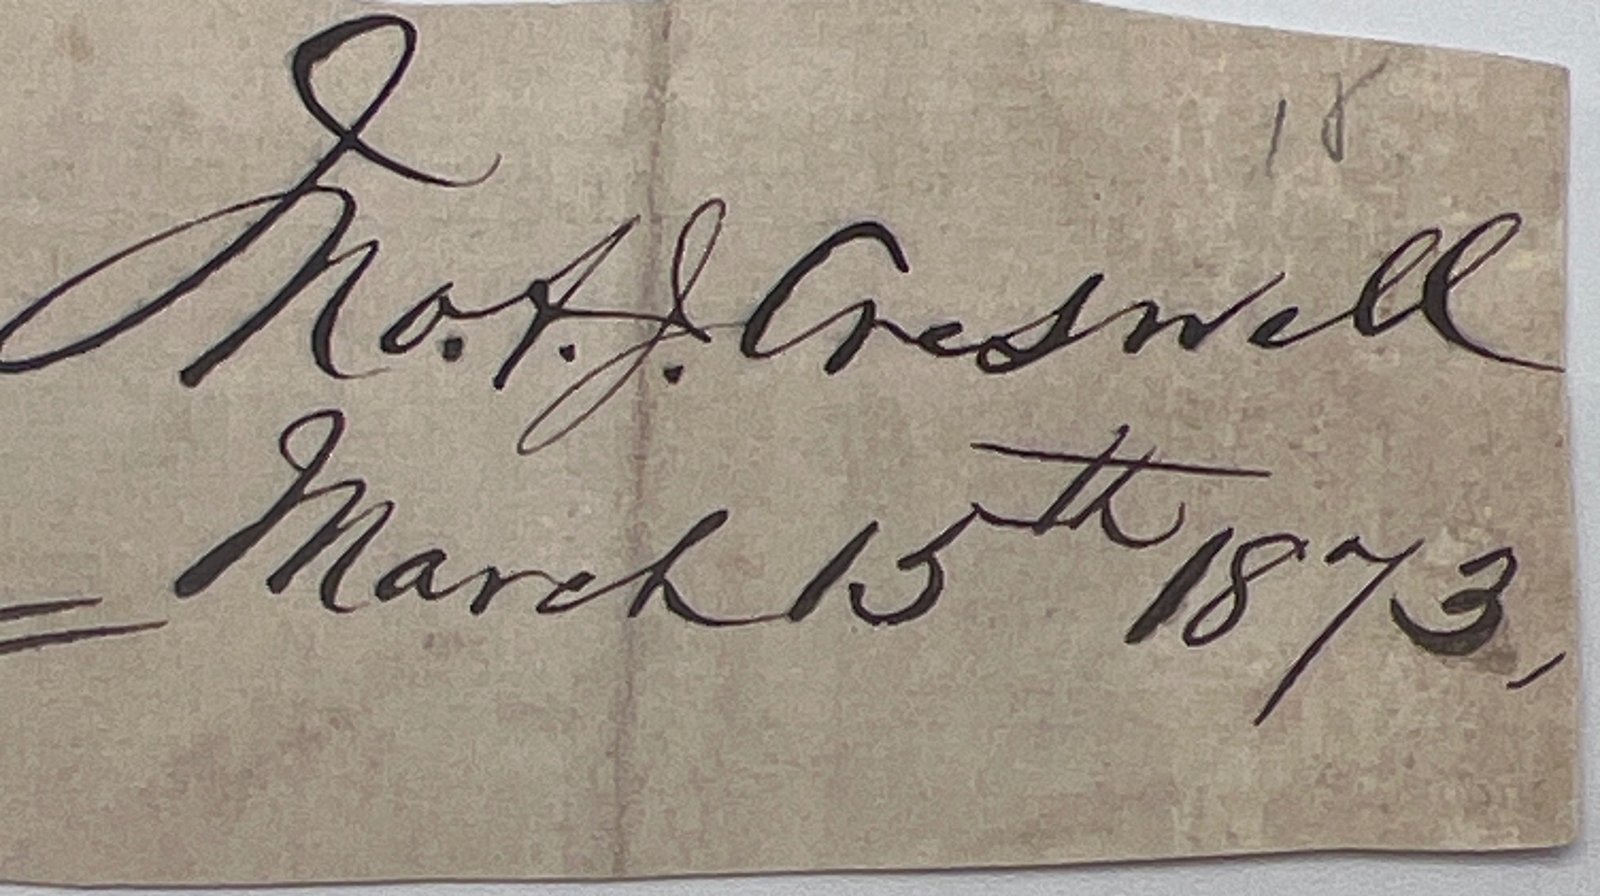 18
Jno. A. J. Creswell
March 15th 1873,